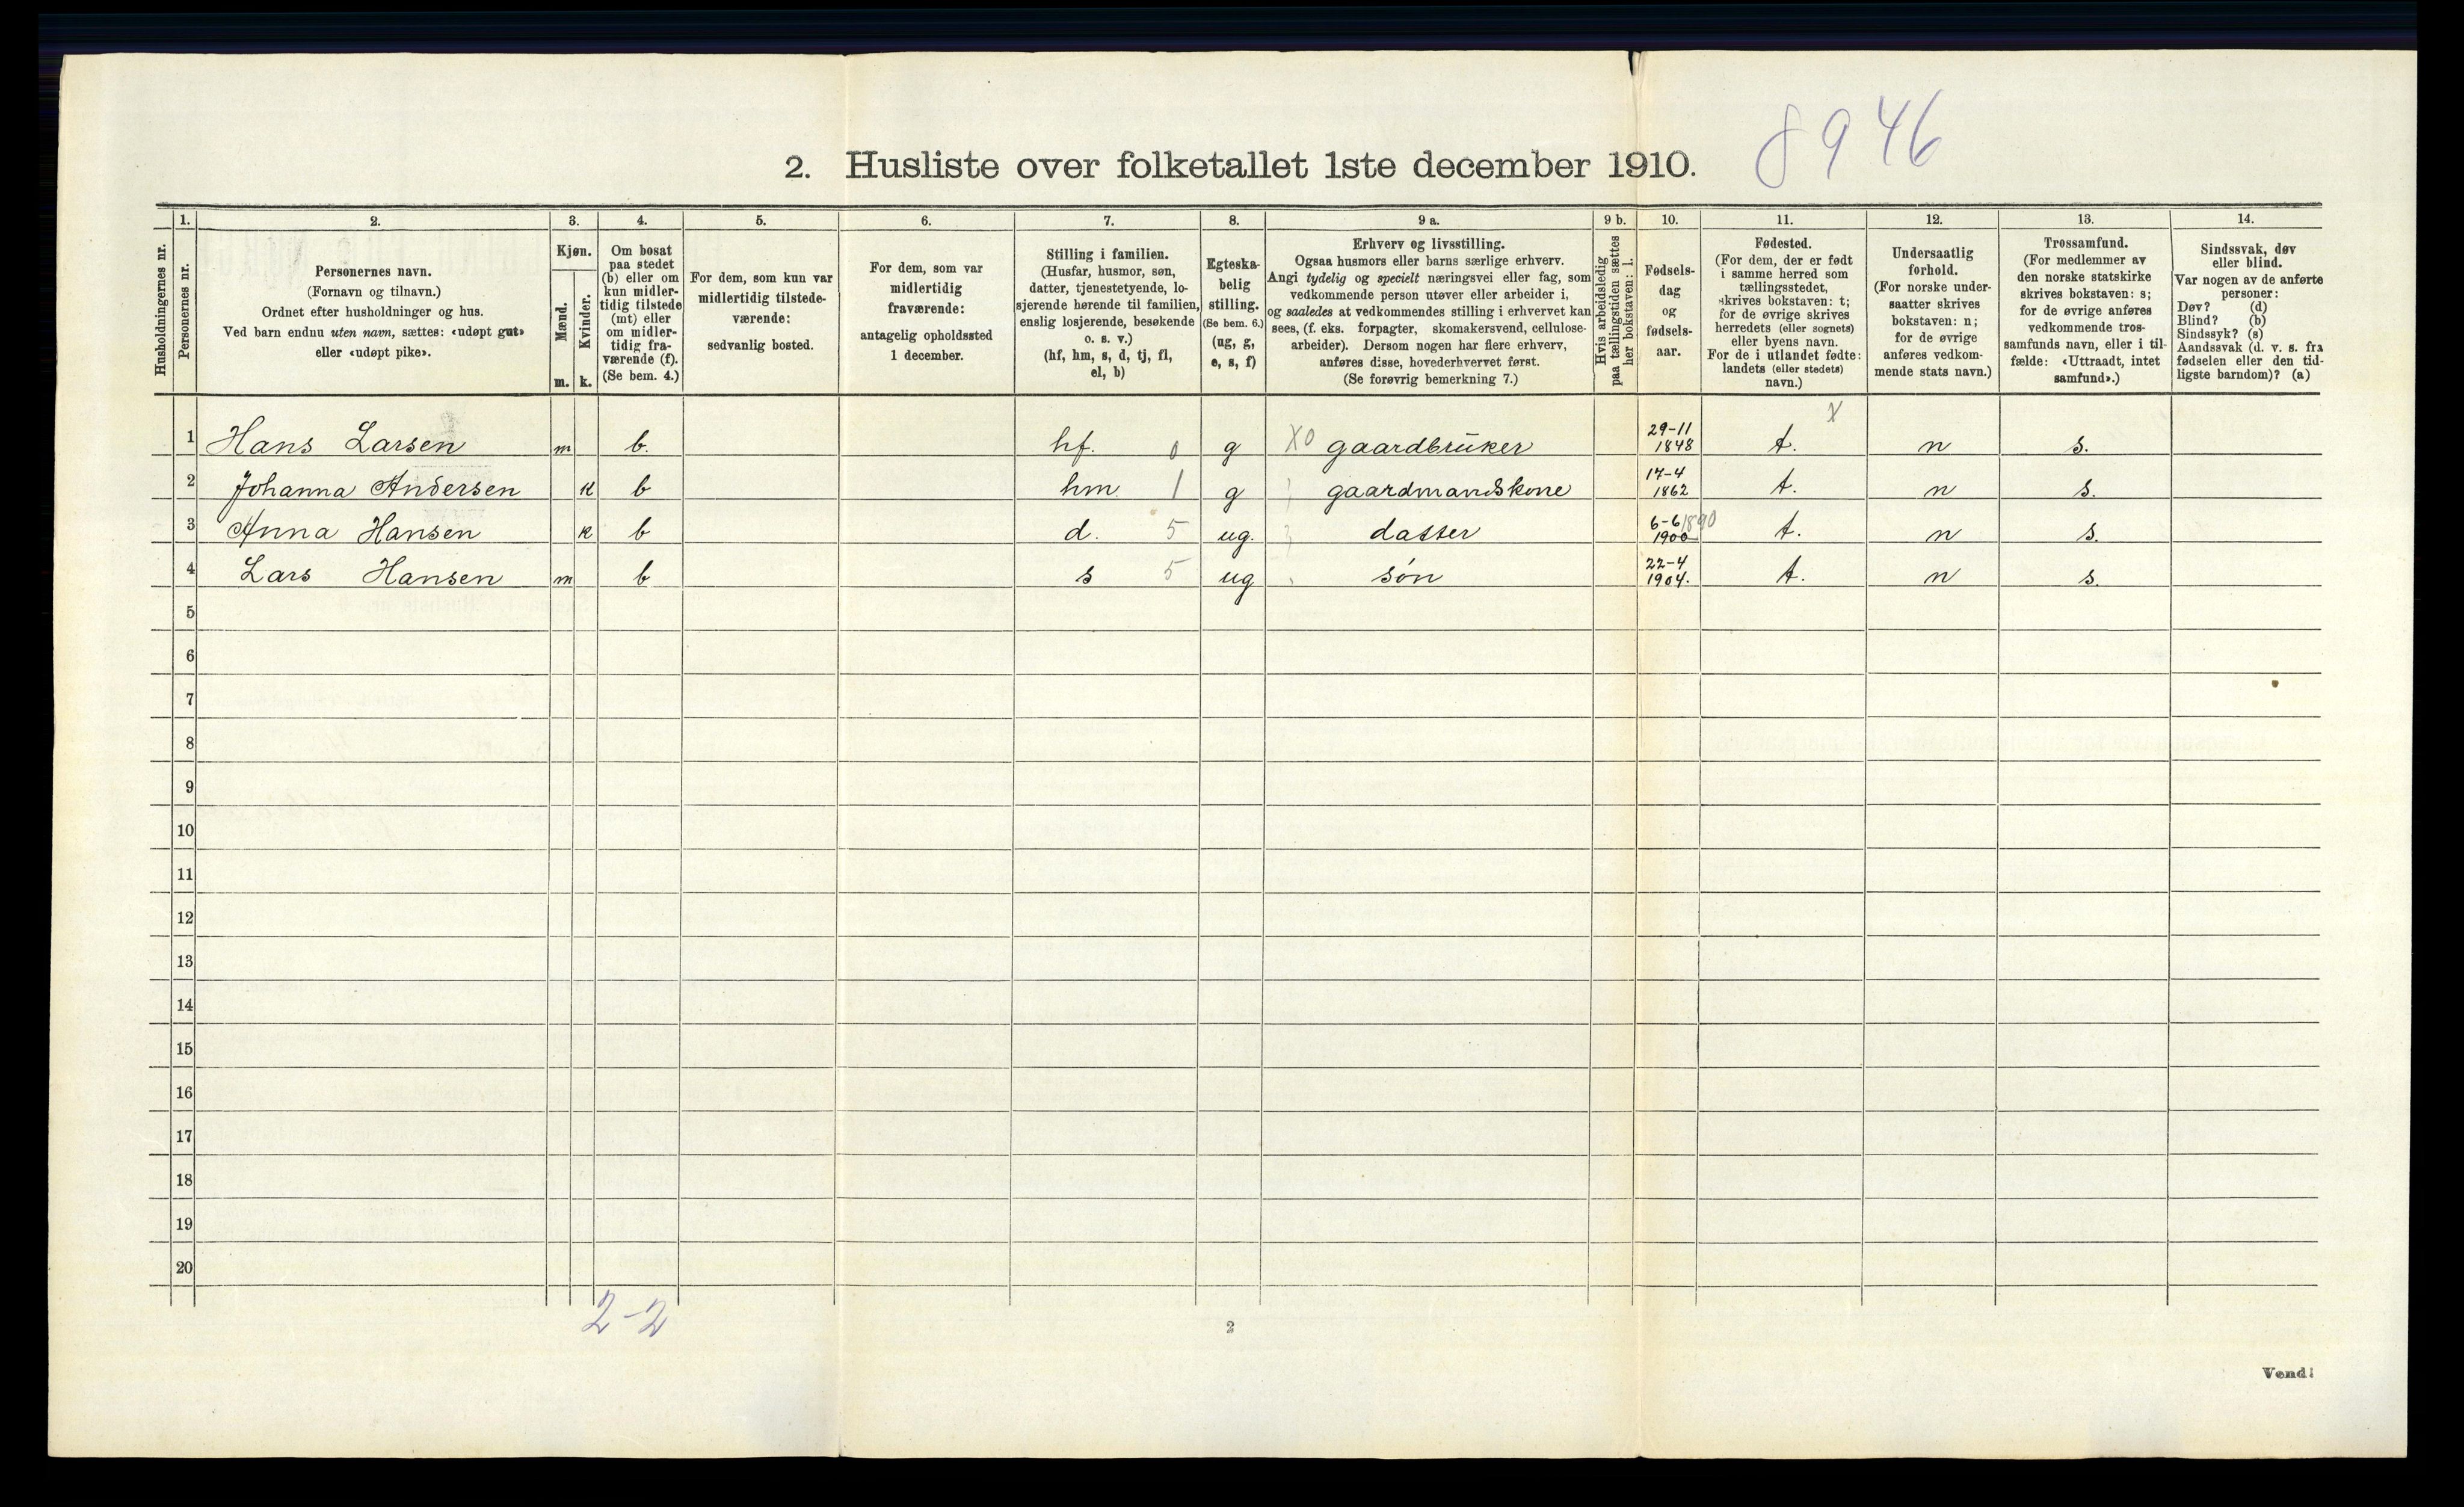 8946
2. Husliste over folketallet 1ste december 1910.
1. 2. 3. 4. 5. 6. 7. 8. 9 a. 9 b. 10. 11. 12. 13. 14.
Husholdningernes nr.
Personernes nr.
Personernes navn.
(Fornavn og tilnavn.)
Ordnet efter husholdninger og hus.
Ved barn endnu uten navn, sættes: «udøpt gut»
eller «udøpt pike».
Kjøn.
Mænd.
m.
Kvinder.
k.
Om bosat
paa stedet
(b) eller om
kun midler-
tidig tilstede
(mt) eller
om midler-
tidig fra-
værende (f).
(Se bem. 4.)
For dem, som kun var
midlertidig tilstede-
værende:
sedvanlig bosted.
For dem, som var
midlertidig
fraværende:
antagelig opholdssted
1 december.
Stilling i familien.
(Husfar, husmor, søn,
datter, tjenestetyende, lo-
sjerende hørende til familien,
enslig losjerende, besøkende
o. s. v.)
(hf, hm, s, d, tj, fl,
el, b)
Egteska-
belig
stilling.
(Se bem. 6.)
(ug, g,
e, s, f)
Erhverv og livsstilling.
Ogsaa husmors eller barns særlige erhverv.
Angi tydelig og specielt næringsvei eller fag, som
vedkommende person utøver eller arbeider i,
og saaledes at vedkommendes stilling i erhvervet kan
sees, (f. eks. forpagter, skomakersvend, cellulose-
arbeider). Dersom nogen har flere erhverv,
anføres disse, hovederhvervet først.
(Se forøvrig bemerkning 7.)
Hvis arbeidsledig
paa tællingstiden sættes
her bokstaven: l.
Fødsels-
dag
og
fødsels-
aar.
Fødested.
(For dem, der er født
i samme herred som
tællingsstedet,
skrives bokstaven: t;
for de øvrige skrives
herredets (eller sognets)
eller byens navn.
For de i utlandet fødte:
landets (eller stedets)
navn.)
Undersaatlig
forhold.
(For norske under-
saatter skrives
bokstaven: n;
for de øvrige
anføres vedkom-
mende stats navn.)
Trossamfund.
(For medlemmer av
den norske statskirke
skrives bokstaven: s;
for de øvrige anføres
vedkommende tros-
samfunds navn, eller i til-
fælde: «Uttraadt, intet
samfund».)
Sindssvak, døv
eller blind.
Var nogen av de anførte
personer:
Døv? (d)
Blind? (b)
Sindssyk? (s)
Aandssvak (d. v. s. fra
fødselen eller den tid-
ligste barndom)? (a)
1 Hans Larsen m b. hf. 0 g X0 gaardbruker 29-11 1848 t. X n s.
2 Johanna Andersen k b hm 1 g gaardmandskone 17-4 1862 t. n s.
3 Anna Hansen k b d. 5 ug. datter 6-6 1890 1900 t. n s.
4 Lars Hansen m b s 5 ug søn 22-4 1904. t. n s.
5
6
7
8
9
10
11
12
13
14
15
16
17
18
19
20
2-2
2
Vend!